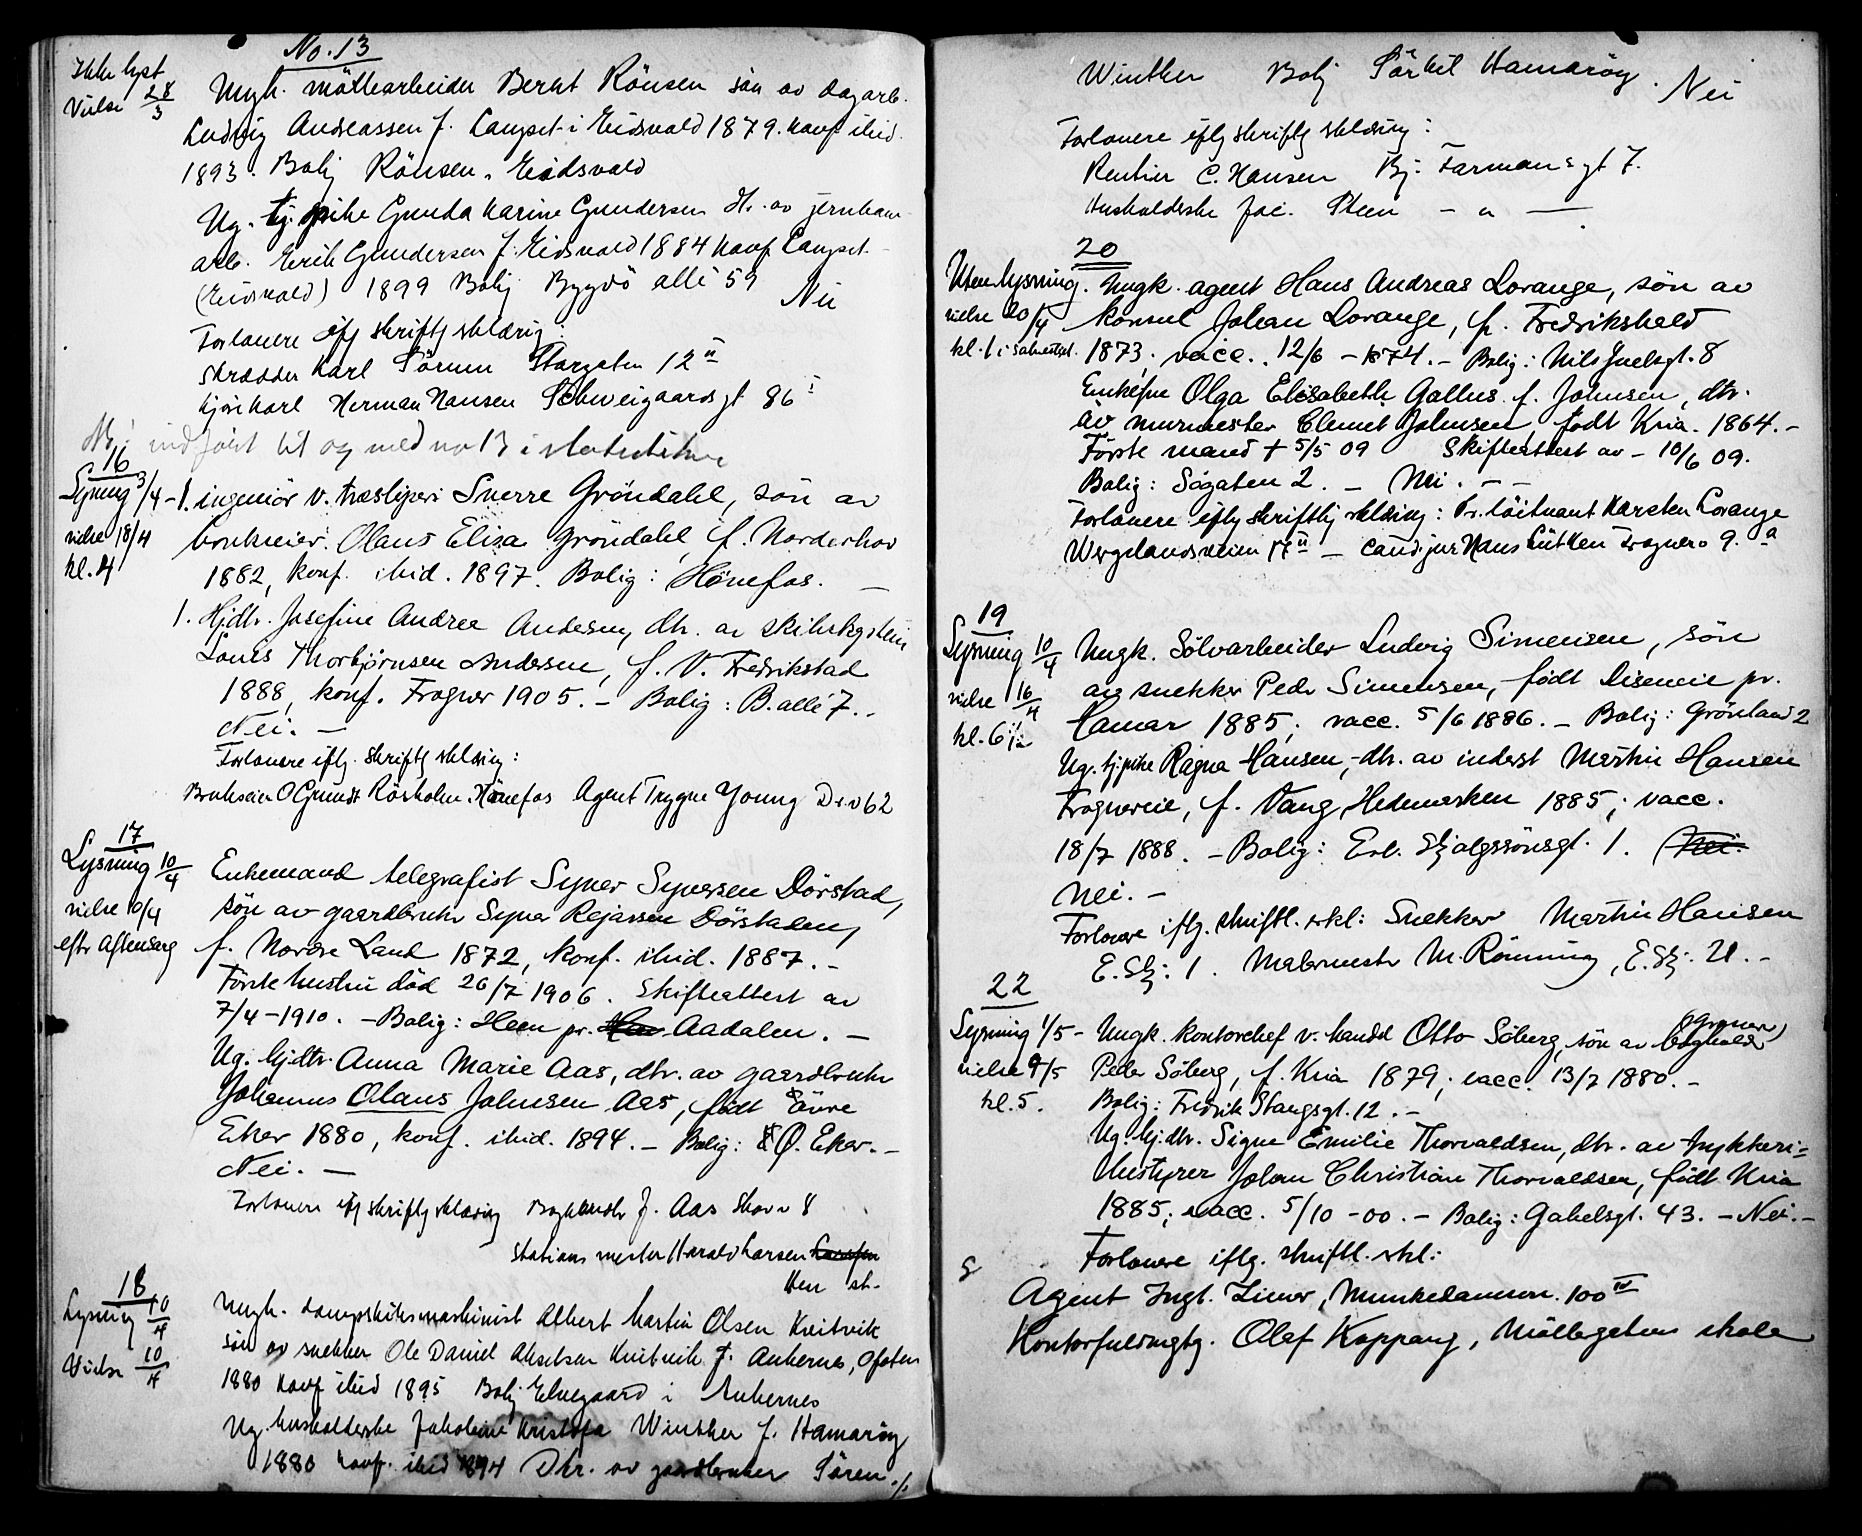 No. 13
Ikke lyst
Vielse 28/3
Ungk. möllearbeider Bernt Rönsen sön av dagarb.
Ludvig Andreassen f. Langset i Eidsvold 1879. konf ibid.
1893. Bolig Rönsen, Eidsvold
Ug. tj. pike Gunda Karine Gundersen dtr. av jernbane
arb. Erik Gundersen f. Eidsvold 1884 konf Langset
(Eidsvold) 1899 Bolig Bygdö allé 59 Nei
Forlovere eflg skriftlg erklæring:
Skrædder Karl Sörum Storgaten 12 II
kjörekarl Herman Hansen Schweigaardsgt 86 I
NB: indfört til og med no 13 i
16
Lysning 3/4 - 1. ingeniör v. træsliperi Sverre Gröndahl, sön av
vielse 18/4 brukseier Olaus Elisa Gröndahl, f. Norderhov
kl. 4 1882, konf. ibid. 1897. Bolig: Hönefos. —
1. Hjdtr. Josefine Andrea Andersen, dtr. av skibskaptein
Louis Thorbjörnsen Andersen, f. V. Fredrikstad
1888, konf. Frogner 1905. — Bolig: B. allé 7. -
Nei. —
Forlovere iflg. skriftlg erklæring:
Brukseier O Grundt Rösholm. Hönefos Agent Trygve Young Do 62
17
Lysning 10/4
vielse 10/4
eftr Aftensang
Enkemand telegrafist Syver Syversen Dörstad,
sön av gaardbruker Syver Rejarsen Dörstaden,
f. Nordre Land 1872, konf. ibid. 1887. -
Förste hustru död 26/7 1906. Skifteattest av
7/4 - 1910. - Bolig: Heen pr. Aadalen. —
Ug. hjdtr. Anna Marie Aas, dtr. av gaardbruker
Johannes Olaus Johnsen Aas, födt Övre
Eker 1880, konf. ibid. 1894. - Bolig: Ø. Eker. -
Nei. —
Forlovere iflg skriftlg erklæring J. Aas 8
Stationsmester Harald Larsen
Hen st.
18
Lysning 10/4
Vielse 10/4
Ungk. dampskibsmaskinist Albert Martin Olsen Kvitvik
sön av snekker Ole Daniel Akselsen Kvitvik f. Ankenes, Ofoten
1880 konf ibid 1895 Bolig Elvegaard i Ankenes
Ug. husholderske Jakobine Kristofa Winther f. Hamaröy
1880 konf. ibid 1894 Dtr. av gaardbruker Sören ./.
Winther Bolig Sörkil Hamaröy. Nei
Forlovere eflg skriftlg erklæring:
Rentier C. Hansen Bj: Farmansgt 7.
Husholderske Steen - " —
20
Uten lysning. Ungk. agent Hans Andreas Lorange, sön av
vielse 20/4 konsul Johan Lorange, f. Fredrikshald
kl. 1 i sakristiet. 1873. vacc. 12/6 - 1874. - Bolig: Nils Juelsgt. 8
Enkefru Olga Elisabeth Gallus f. Johnsen, dtr.
av murmester Clemet Johnsen, födt Kria. 1864. -
Förste mand † 5/5 09 Skifteattest av - 10/6 09.
Bolig: Sögaten 2. - Nei. - -
Forlovere eflg skriftlig erklæring: Pr. löitnant Karsten Lorange
Wergelandsveien II - cand. jur Hans Lütken Frognerv 9. a
19
Lysning 10/4
vielse 16/4
kl. 6 1/2
Ungk. Sölvarbeider Ludvig Simensen, sön
av snekker Peder Simensen, födt Diseneie pr.
Hamar 1885; vacc. 5/6 1886. - Bolig: Grönland 2
Ug. tj.pike Ragna Hansen, - dtr. av inderst Martin Hansen
Frognereie, f. Vang, Hedemarken 1885; vacc.
18/7 1888. - Bolig: Erl. Skjalgssönsgt. 1. (Nei.
Nei. -
Forlovere iflg. skriftl. erkl: Snekker Martin Hansen
E. Skj: 1. Malermestr M. Rönning, E. Skj: 21. -
22
Lysning 1/5 - Ungk. kontorchef v. handel Otto Söberg, sön av (grosser) bogholder
vielse 9/5 Peder Söberg, f. Kria 1879; vacc. 13/7 1880. -
kl. 5. Bolig: Fredrik Stangsgt. 12. -
Ug. hj.dtr. Signe Emilie Thorvaldsen, dtr. av trykkeri=
bestyrer Johan Christian Thorvaldsen, födt Kria
1885; vacc. 5/10 - 00. - Bolig: Gabelsgt. 43. - Nei. -
Forlovere iflg. skriftl. erkl:
Agent Ingb. Zimer, Munkedamsv. 100 IV
Kontorfuldmgtg. Olaf Koppang, Möllegatens skole